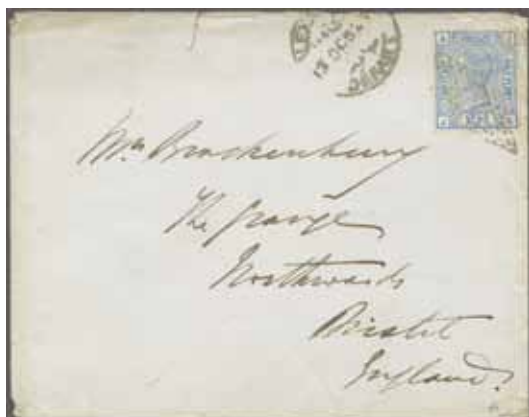 13 OC 8
Mrs Brackenbury
The Grange
Northwoods
Bristol
England.